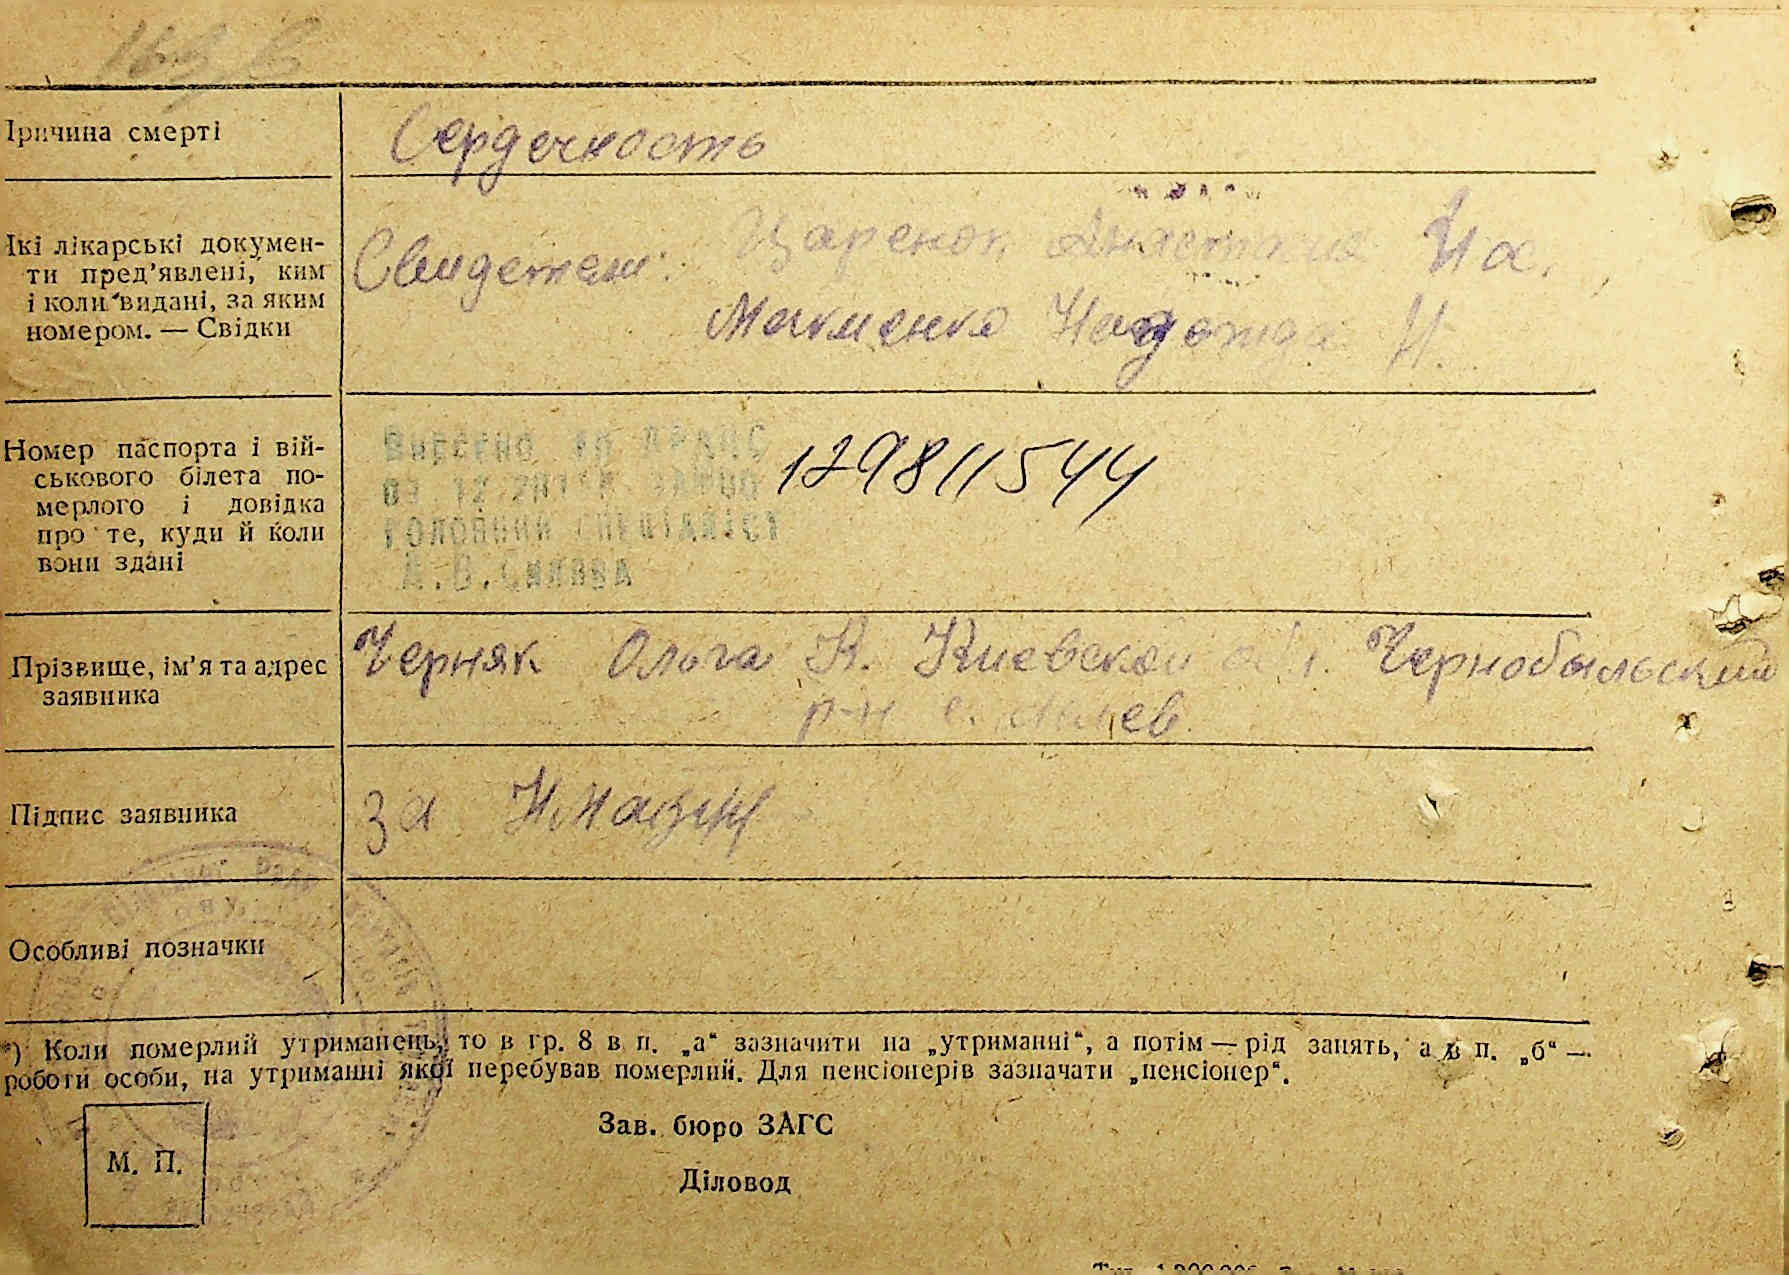 Причина смерті
Сердечность
Які лікарські докумен-
ти пред’явлені, ким
і коли видані, за яким
номером. — Свідки
Свидетели: Царенок Анастасия Ив.
Макменко Надежда И.
Номер паспорта і вій-
ськового білета по-
мерлого і довідка
про те, куди й коли
вони здані
Внесено до ДРАЦС
головний спеціаліст
129811544
Прізвище, ім’я та адрес
заявника
Черняк Ольга К. Киевской обл. Чернобыльский
р-н с.
Підпис заявника
за
Особливі позначки
*) Коли померлий утриманець, то в гр. 8 в п. „а“ зазначити на „утриманні“, а потім — рід занять, а в п. „б“ —
роботи особи, на утриманні якої перебував померлий. Для пенсіонерів зазначати „пенсіонер“.
Зав. бюро ЗАГС
М. П.
Діловод